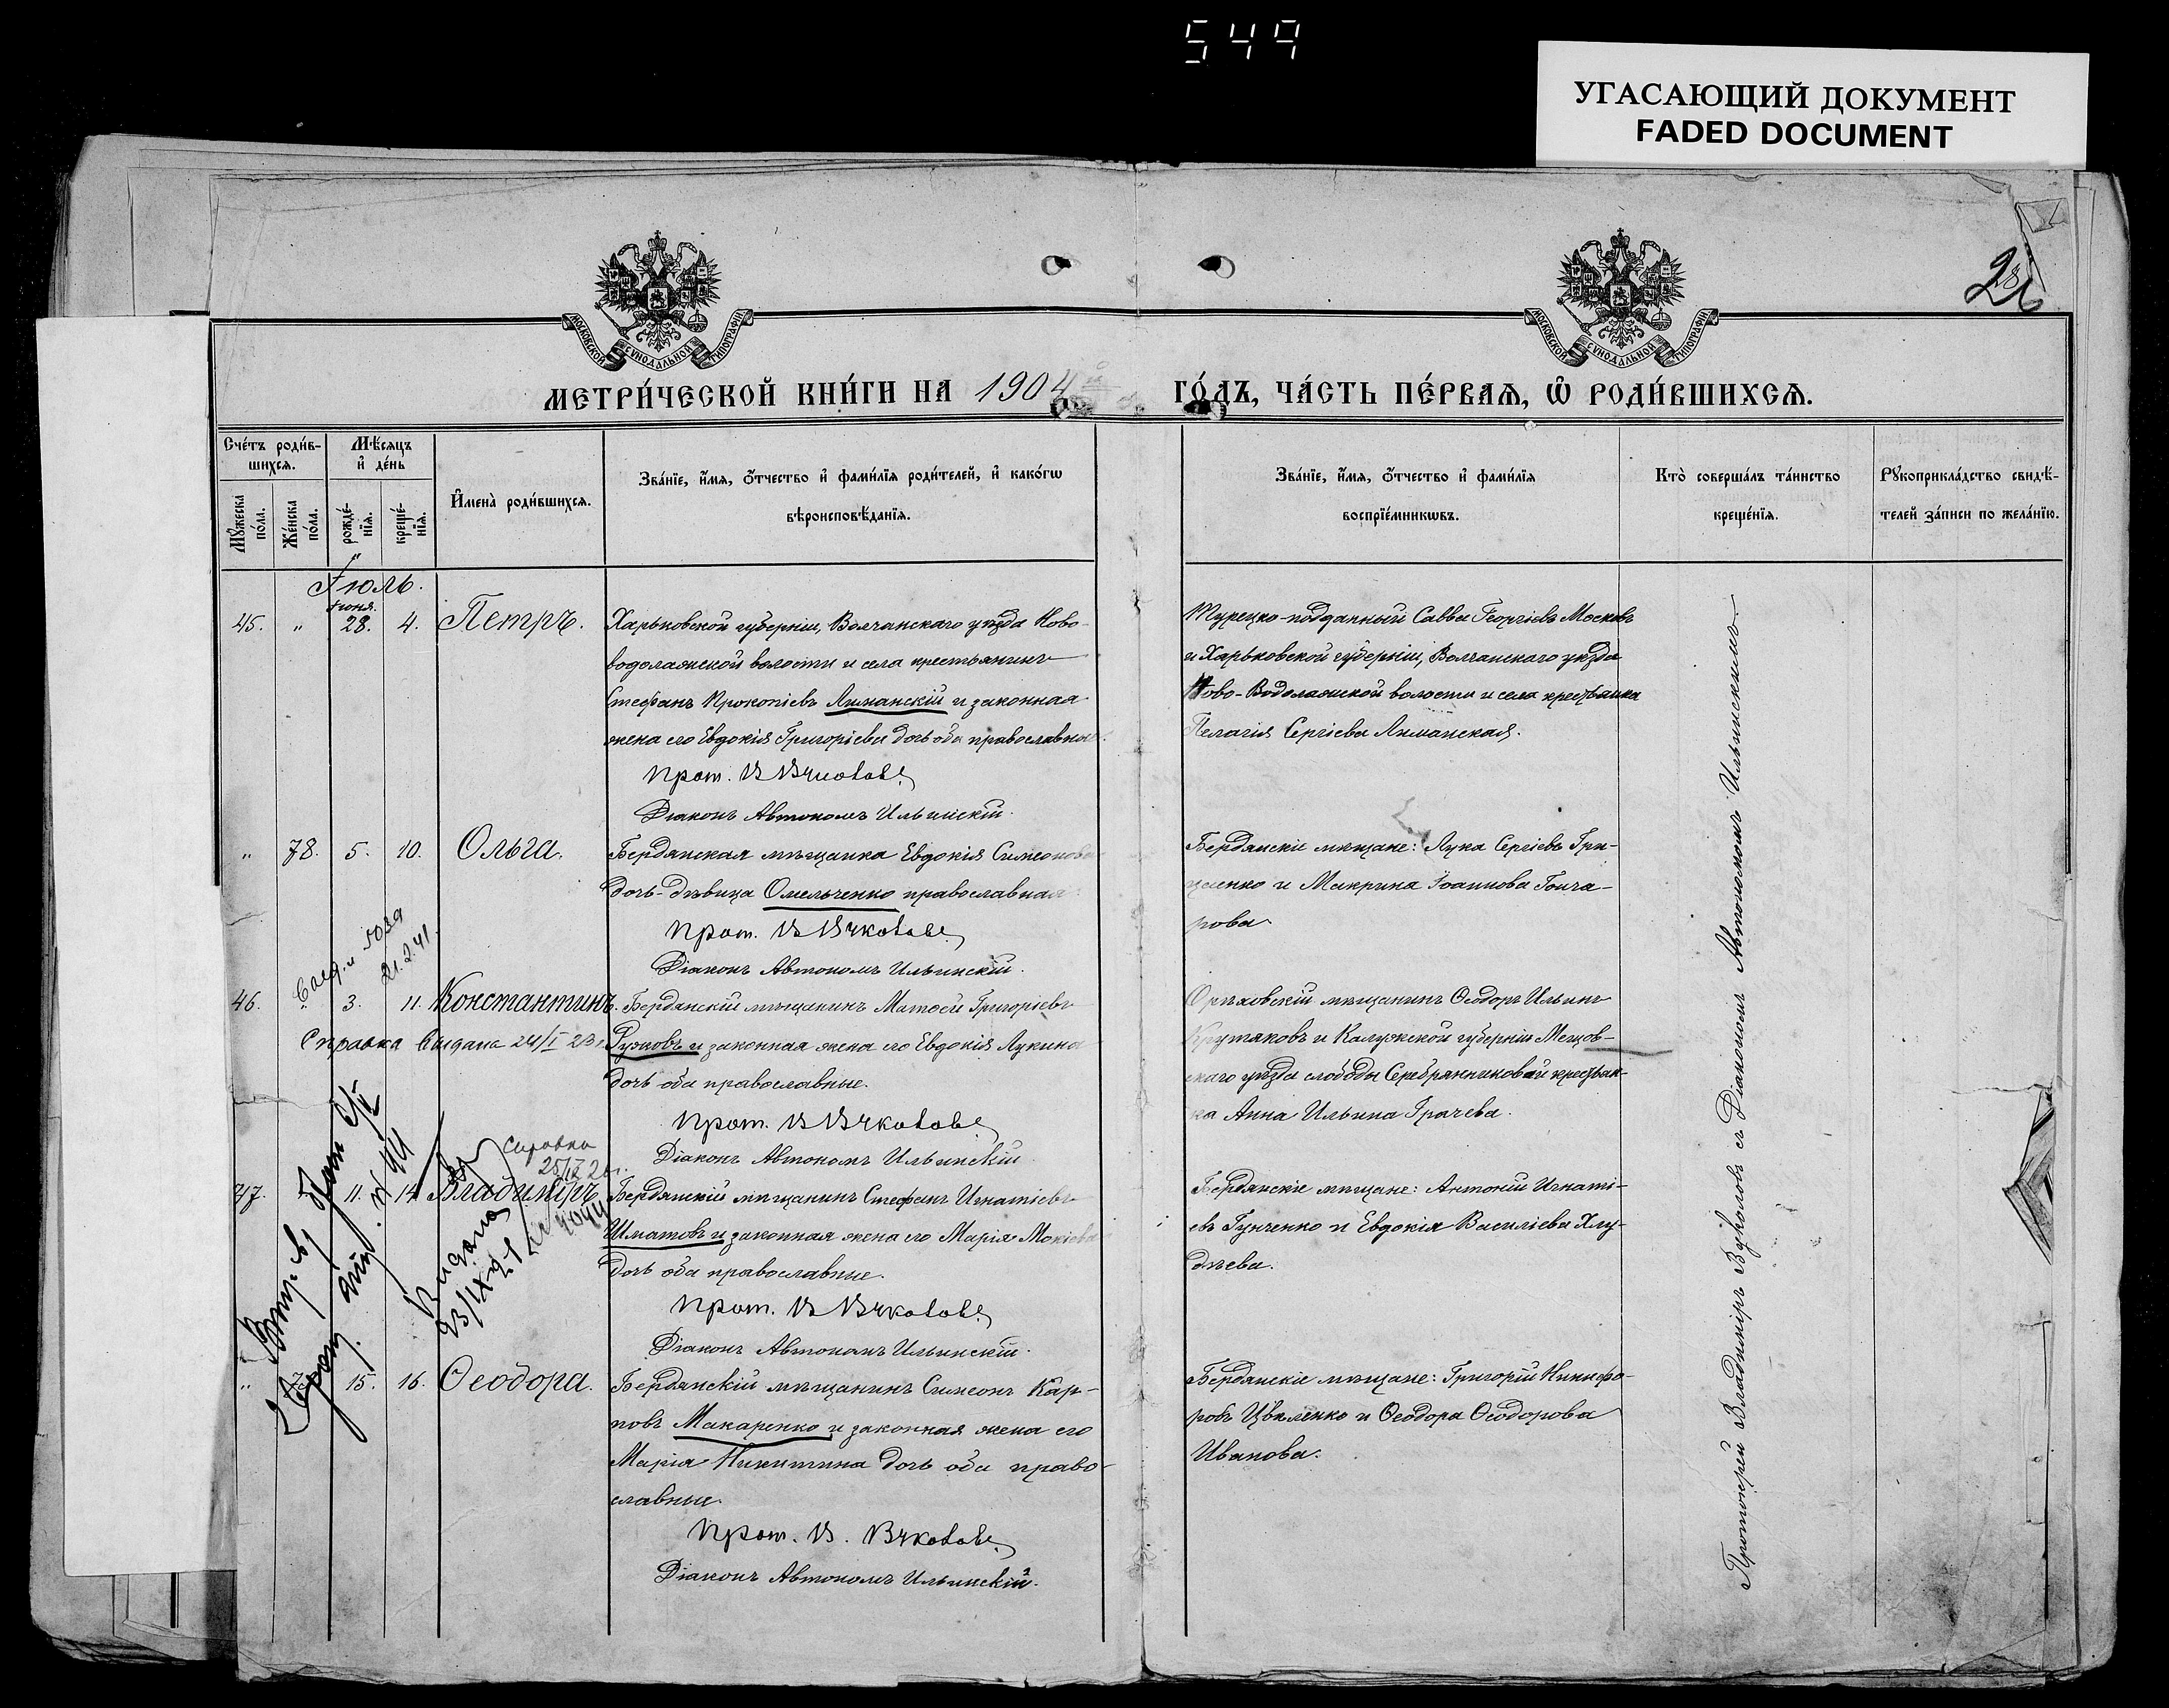 549
УГАСАЮЩИЙ ДОКУМЕНТ
FADED DOCUMENT
28
МОСКОВСКОЙ СѴНОДАЛЬНОЙ ТИПОГРАФІИ
МОСКОВСКОЙ СѴНОДАЛЬНОЙ ТИПОГРАФІИ
МЕТРИ́ЧЕСКОЙ КНИ́ГИ НА 1904 ГО́ДЪ, ЧА́СТЬ ПЕ́РВАЯ, Ѡ РОДИ́ВШИХСЯ.
Сче́тъ роди́вшихся.
Мѹ́жеска по́ла.
Же́нска по́ла.
Мѣ́сяцъ и҆ де́нь
рожде́нїя.
креще́нїя.
И҆мена̀ роди́вшихся.
Зва́нїе, и҆́мя, ѻ҆́тчество и҆ фами́лїя роди́телей, и҆ како́гѡ
вѣроисповѣ́данїя.
Зва́нїе, и҆́мя, ѻ҆́тчество и҆ фами́лїя
воспрїе́мникѡвъ.
Кто̀ соверша́лъ та́инство
креще́нїя.
Рѹкоприкла́дство свидѣ́-
телей за́писи по жела́нїю.
Іюль.
Іюня.
45. " 28. 4. Петръ. Харьковской губерніи, Волчанскаго уѣзда Ново-
водолажской волости и села крестьянинъ
Стефанъ Прокопіевъ Лиманскій и законная
жена его Евдокія Григоріева дочь оба православные
Прот. В Вуколовъ
Діаконъ Автономъ Ильинскій.
Турецко-подданный Савва Георгіевъ Московъ
и Харьковской губерніи, Волчанскаго уѣзда
Ново-Водолажской волости и села крестьянка
Пелагія Сергіева Лиманская.
" 78. 5. 10. Ольга. Бердянская мѣщанка Евдокія Симеонова
дочь-дѣвица Омельченко православная
Прот. В Вуколовъ
Діаконъ Автономъ Ильинскій.
Бердянскіе мѣщане: Лука Сергіевъ Гри-
ценко и Макрина Іоаннова Гонча-
рова
21.2.41.
46. " 3. 11. Константинъ. Бердянскій мѣщанинъ Матѳей Григорьевъ
Справка выдана 24/I 23
Рузковъ и законная жена его Евдокія Лукина
дочь оба православные.
Прот. В Вуколовъ
Діаконъ Автономъ Ильинскій
Орѣховскій мѣщанинъ Ѳеодоръ Ильинъ
Крутяковъ и Калужской губерніи Мещов-
скаго уѣзда слободы Серебрянниковой крестьян-
ка Анна Ильина Грачева.
Справка
47. 11. 14. Владиміръ. Бердянскій мѣщанинъ Стефанъ Игнатіевъ
Шматовъ и законная жена его Марія Мокіева
дочь оба православные.
Прот. В Вуколовъ
Діаконъ Автономъ Ильинскій.
Бердянскіе мѣщане: Антоній Игнаті-
евъ Гунченко и Евдокія Василіева Хлу-
дѣева.
Выдана
23/IX 21
" 15. 16. Ѳеодора. Бердянскій мѣщанинъ Симеонъ Кар-
повъ Макаренко и законная жена его
Марія Никитина дочь оба право-
славные.
Прот. В. Вуколовъ
Діаконъ Автономъ Ильинскій.
Бердянскіе мѣщане: Григорій Никифо-
ровъ Цвиленко и Ѳеодора Ѳеодорова
Иванова.
Протоіерей Владиміръ Вуколовъ съ Діакономъ Автономомъ Ильинскимъ.